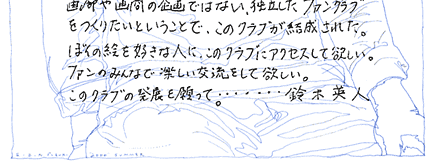 画廊や画商の企画ではない、独立したファンクラブ
をつくりたいということで、このクラブが結成された。
ぼくの絵を好きな人に、このクラブにアクセスして欲しい。
ファンのみんなで楽しい交流をして欲しい。
このクラブの発展を願って。・・・・・・・鈴木英人